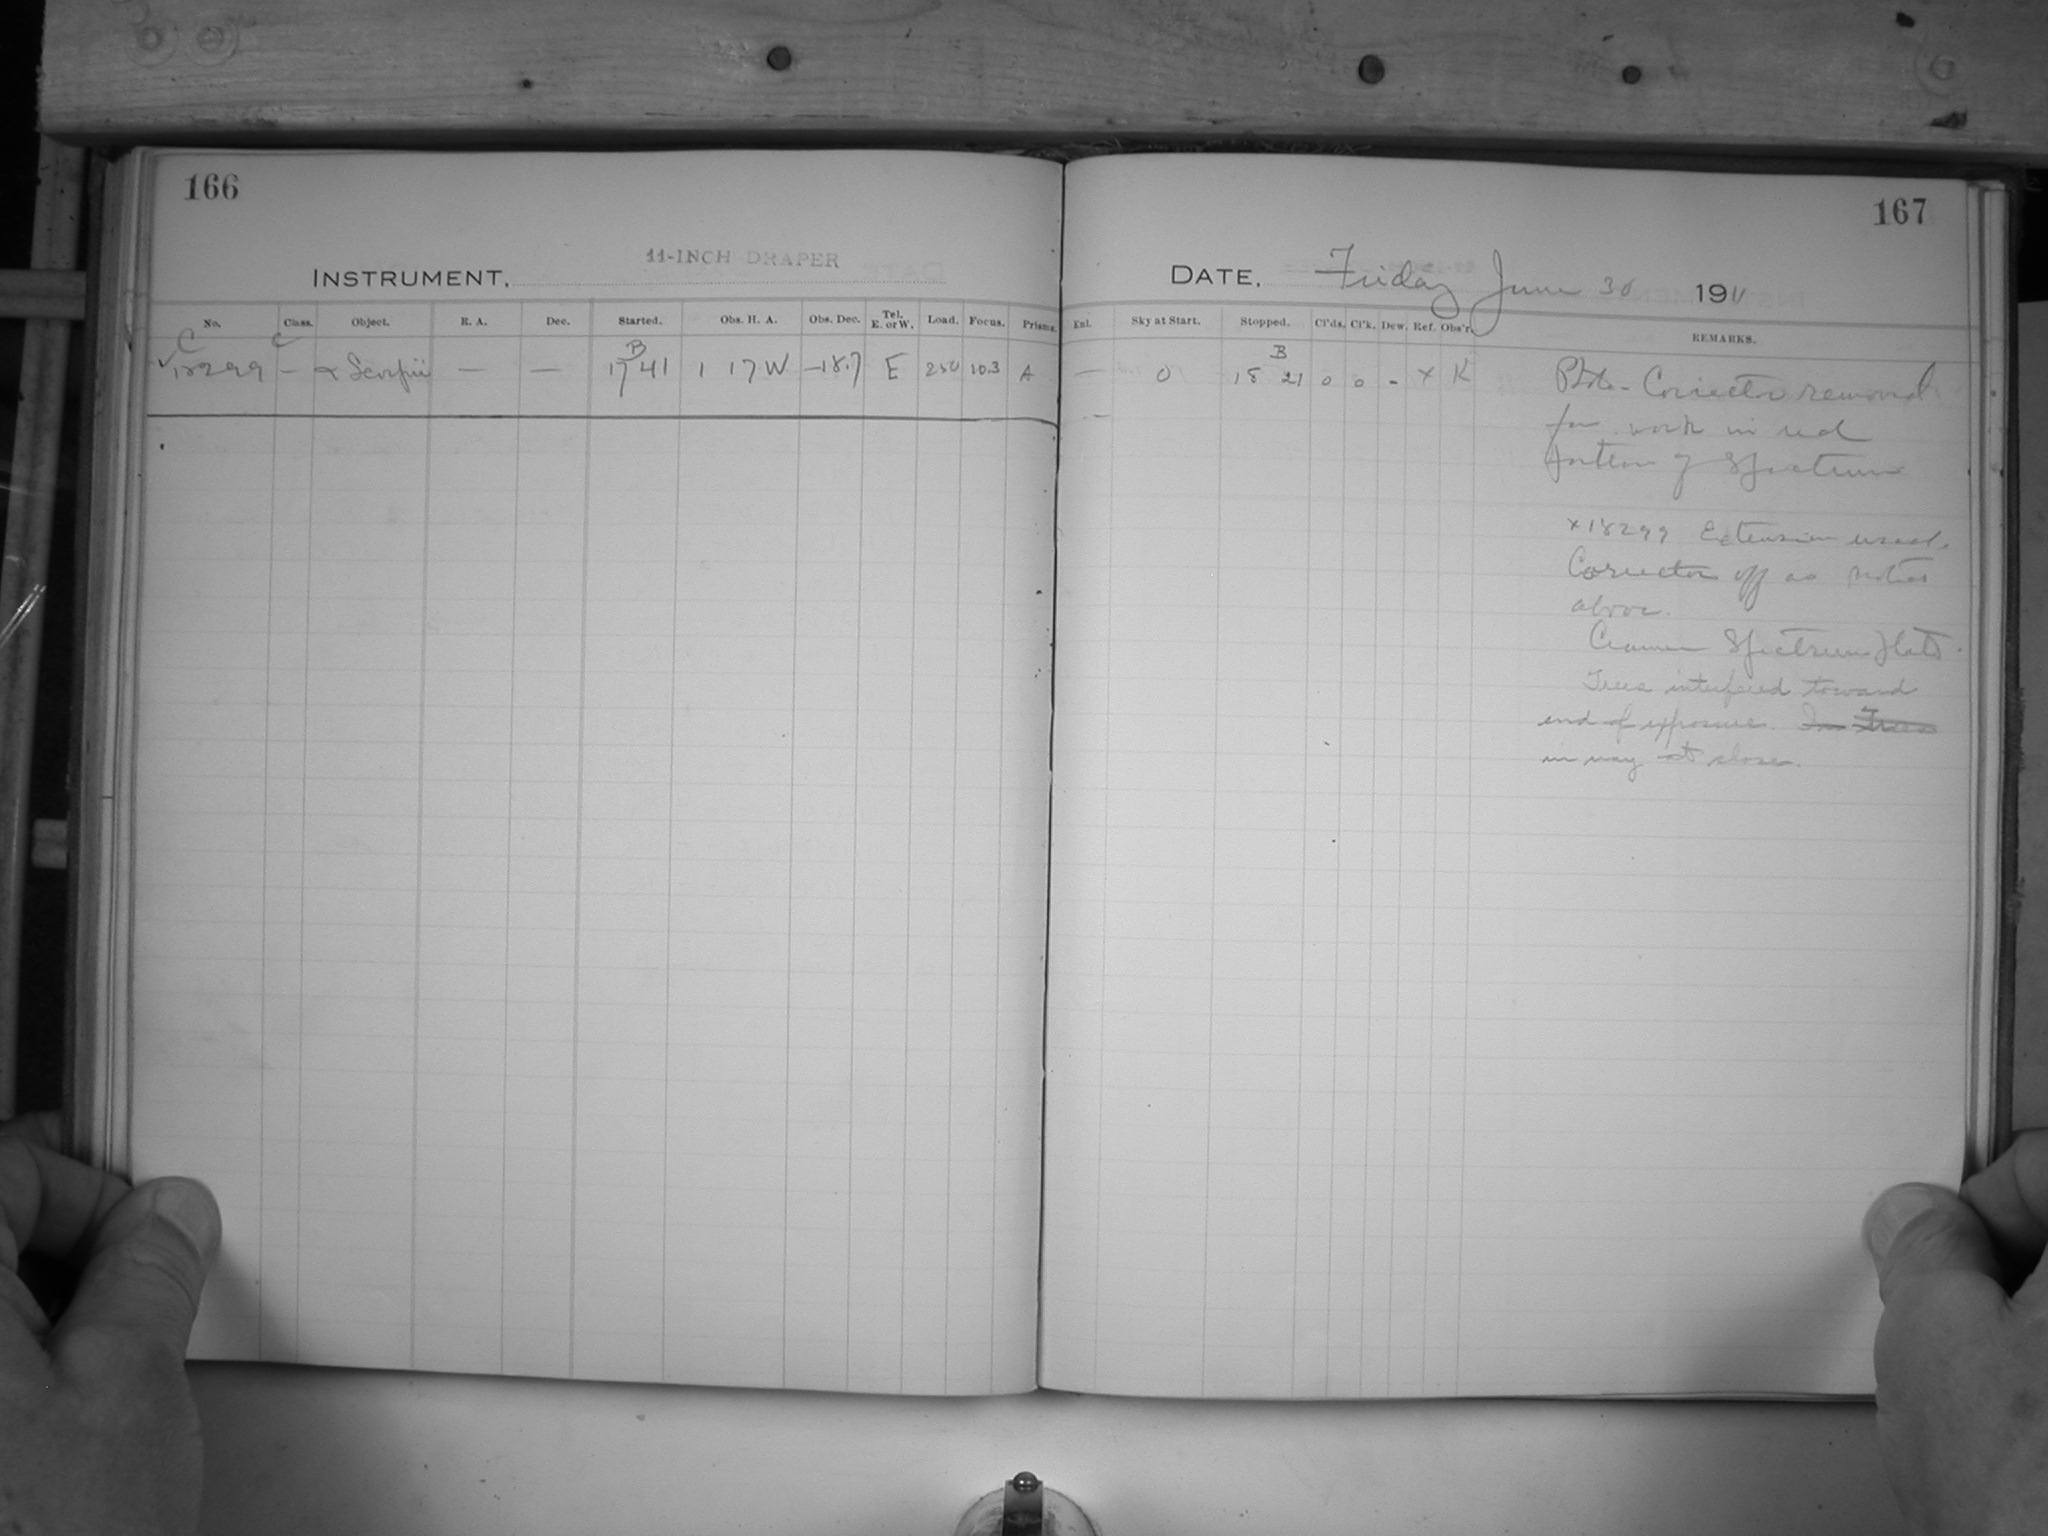 166
11-INCH DRAPER
INSTRUMENT,
No. Class. Object. R. A. Dec. Started. Obs. H. A. Obs. Dec. Tel. E. or W. Load. Focus. Prisms.
C C B
✓18299 - α Scorpii — — 17 41 1 17 W -18.7 E 250 10.3 A
167
DATE, Friday June 30 1911
Enl. Sky at Start. Stopped. Cl'ds. Cl'k. Dew. Ref. Obs'r. REMARKS.
B
— 0 18 21 0 0 - x K
Photo-Corrector removed
for work in red
portion of Spectrum
x 18299 Extension used.
Corrector off as noted
above.
Cramer Spectrum Plate.
Trees interfered toward
end of exposure. In Trees
in way at close.